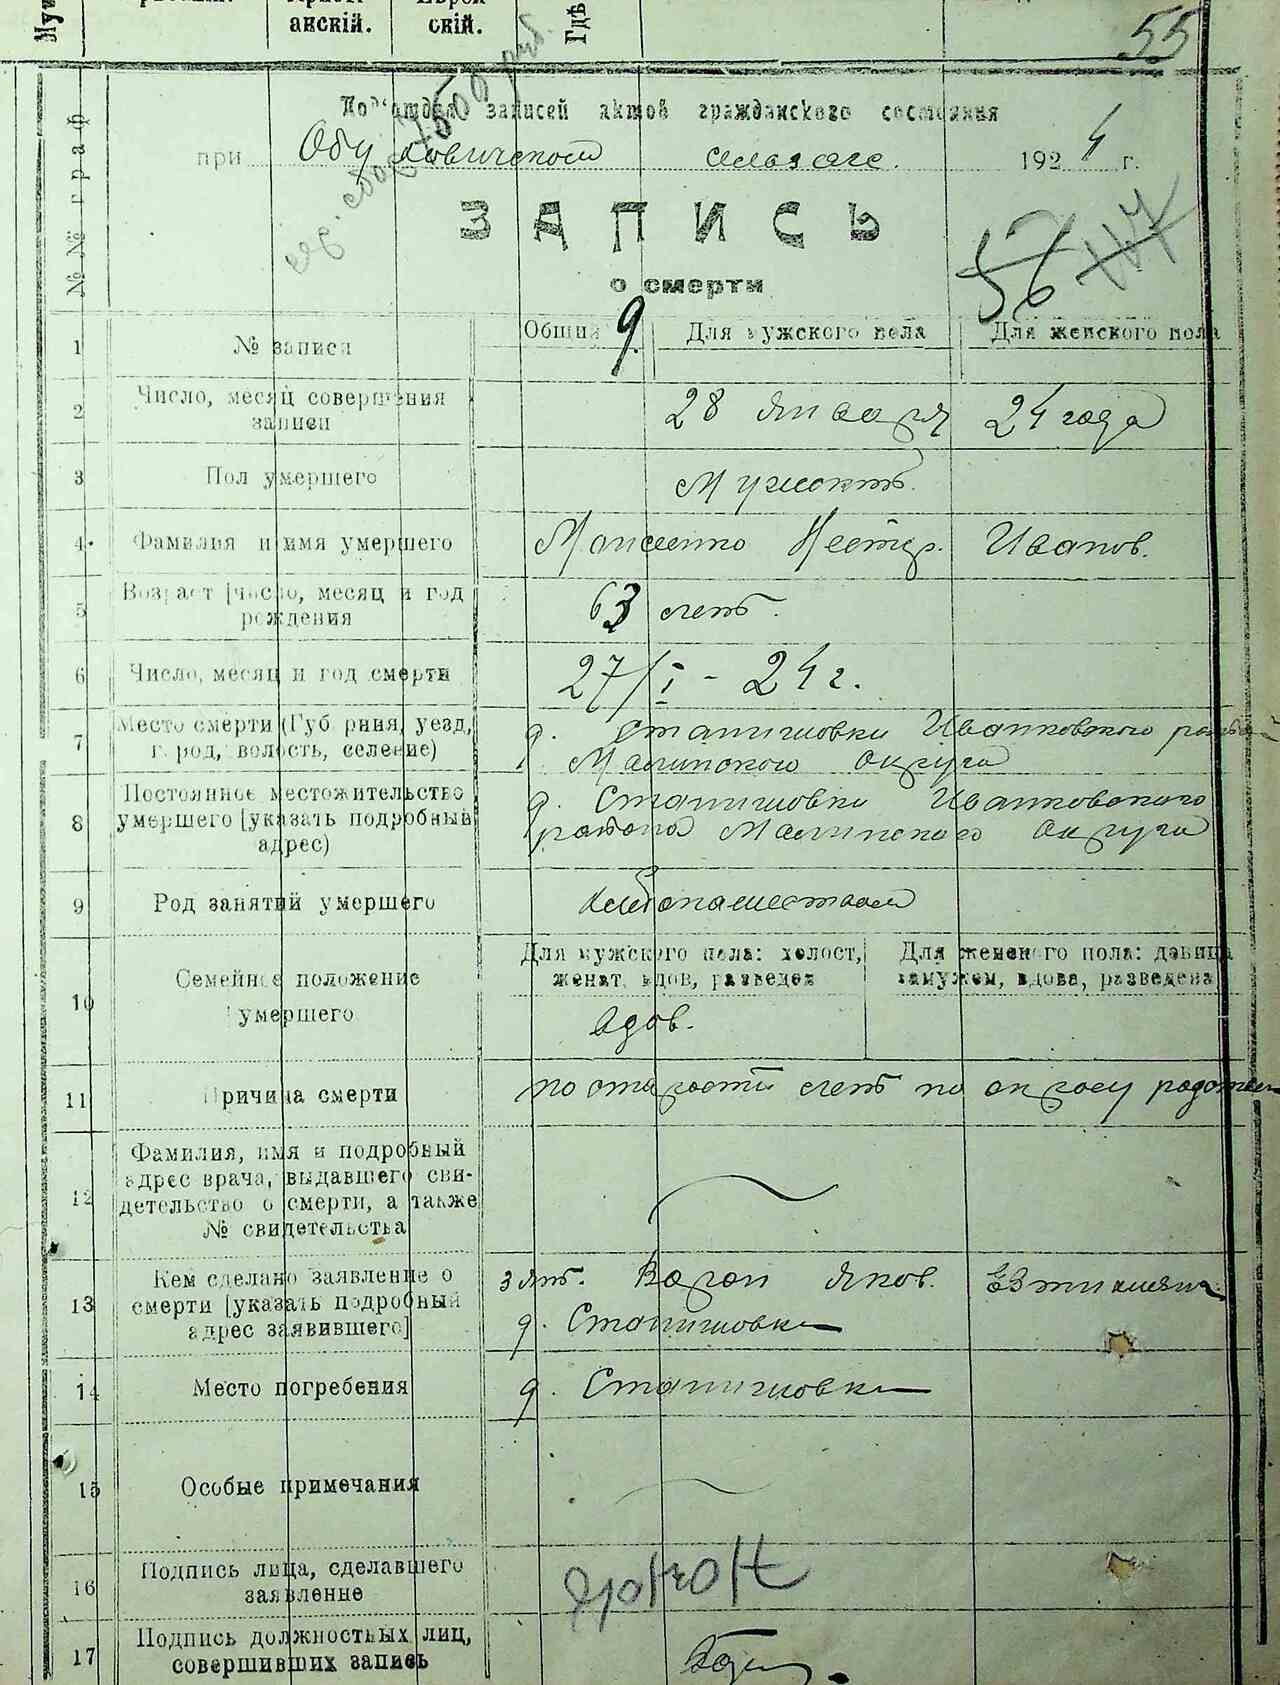 анскій.
скій.
Гдѣ
55
Под'отдел записей актов гражданского состояния
при Обуховическом сельзаге. 1924 г.
№ № граф
ЗАПИСЬ
о смерти
56 117
1 № записи Общий 9. Для мужского пола Для женского пола
2 Число, месяц совершения записи 28 января 24 года
3 Пол умершего Мужскъ.
4. Фамилия и имя умершего Моисеенко Нестер. Иванов.
5 Возраст [число, месяц и год рождения 63 летъ.
6 Число, месяц и год смерти 27/I - 24 г.
7 Место смерти (Губ рния, уезд, город, волость, селение) д. Станишовки Иванковского района
Малинского округа
8 Постоянное местожительство умершего [указать подробный адрес) д. Станишовки Иванковского
района Малинского округа
9 Род занятий умершего хлебопашеством
10 Семейное положение умершего
Для мужского пола: холост, женат, вдов, разведен
Для женского пола: девица, замужем, вдова, разведена
вдов.
11 Причина смерти по старости летъ по опросу родствен
12 Фамилия, имя и подробный адрес врача, выдавшего свидетельство о смерти, а также № свидетельства
13 Кем сделано заявление о смерти [указать подробный адрес заявившего] зять. Яков.
д. Станишовки
14 Место погребения д. Станишовки
15 Особые примечания
16 Подпись лица, сделавшего заявление
17 Подпись должностных лиц, совершивших запись